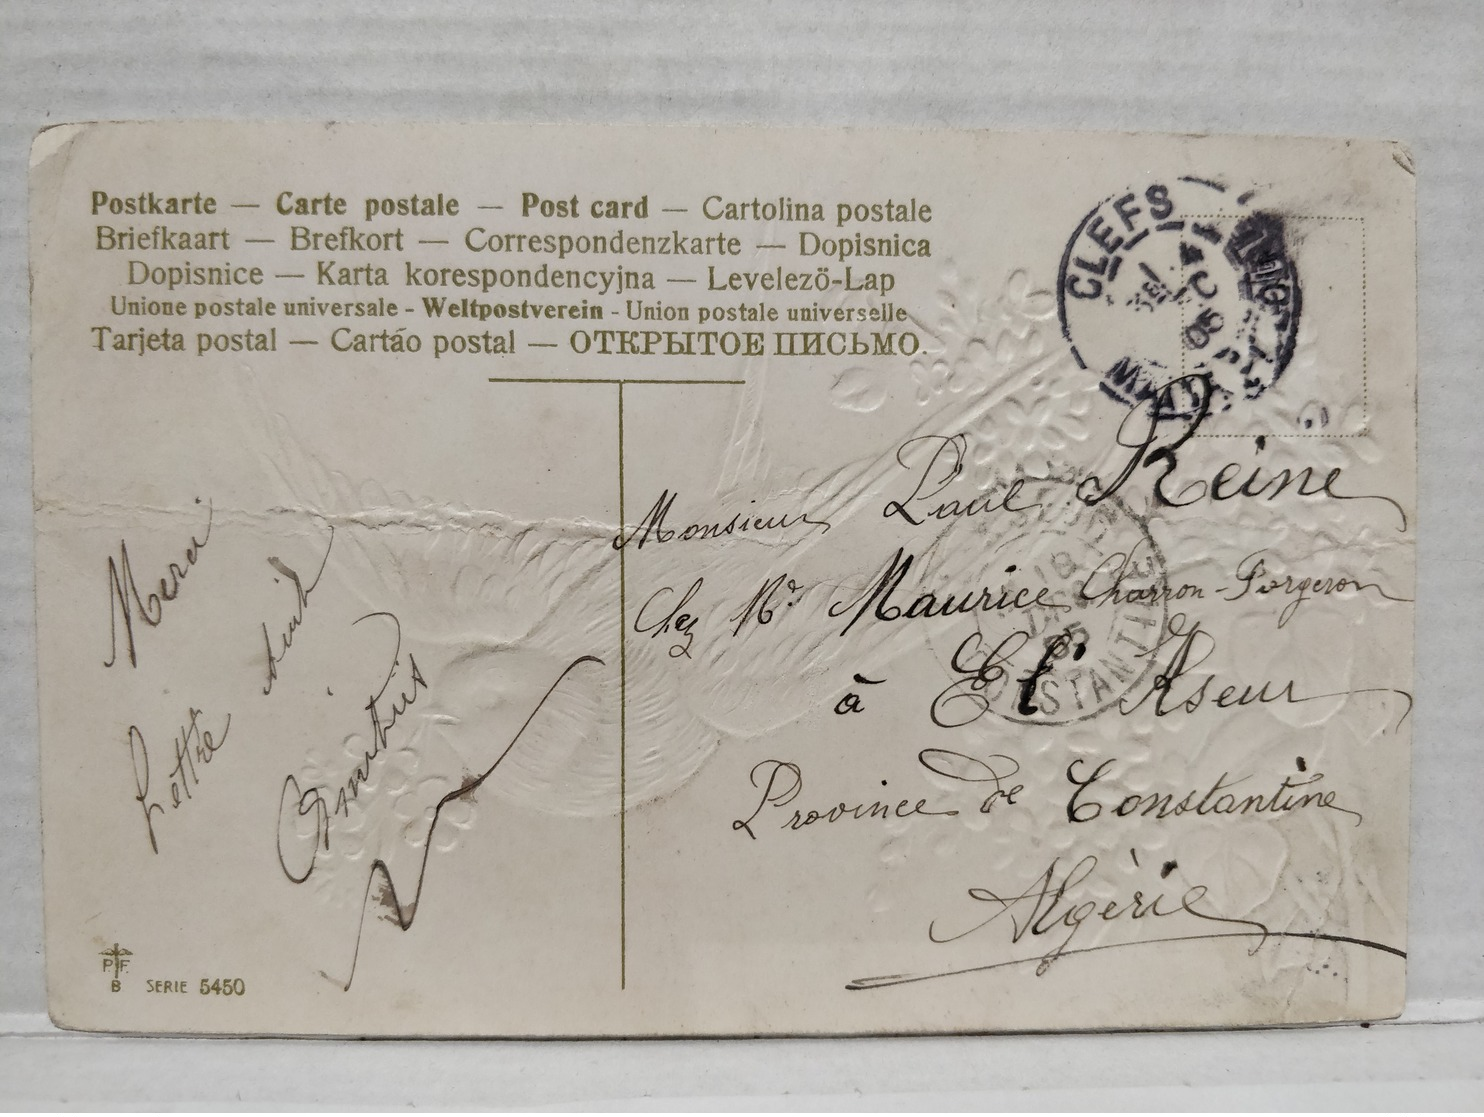 Postkarte — Carte postale — Post card — Cartolina postale
Briefkaart — Brefkort — Correspondenzkarte — Dopisnica
Dopisnice — Karta korespondencyjna — Levelezö-Lap
Unione postale universale - Weltpostverein - Union postale universelle
Tarjeta postal — Cartão postal — ОТКРЫТОЕ ПИСЬМО.
CLEFS
05
Monsieur Paul Reine
Chez Mr Maurice Charron-Forgeron
à El Kseur
Province de Constantine
Algérie
CONSTANTINE
05
Merci
Lettre suit
Amitiés
P.F.
B SERIE 5450